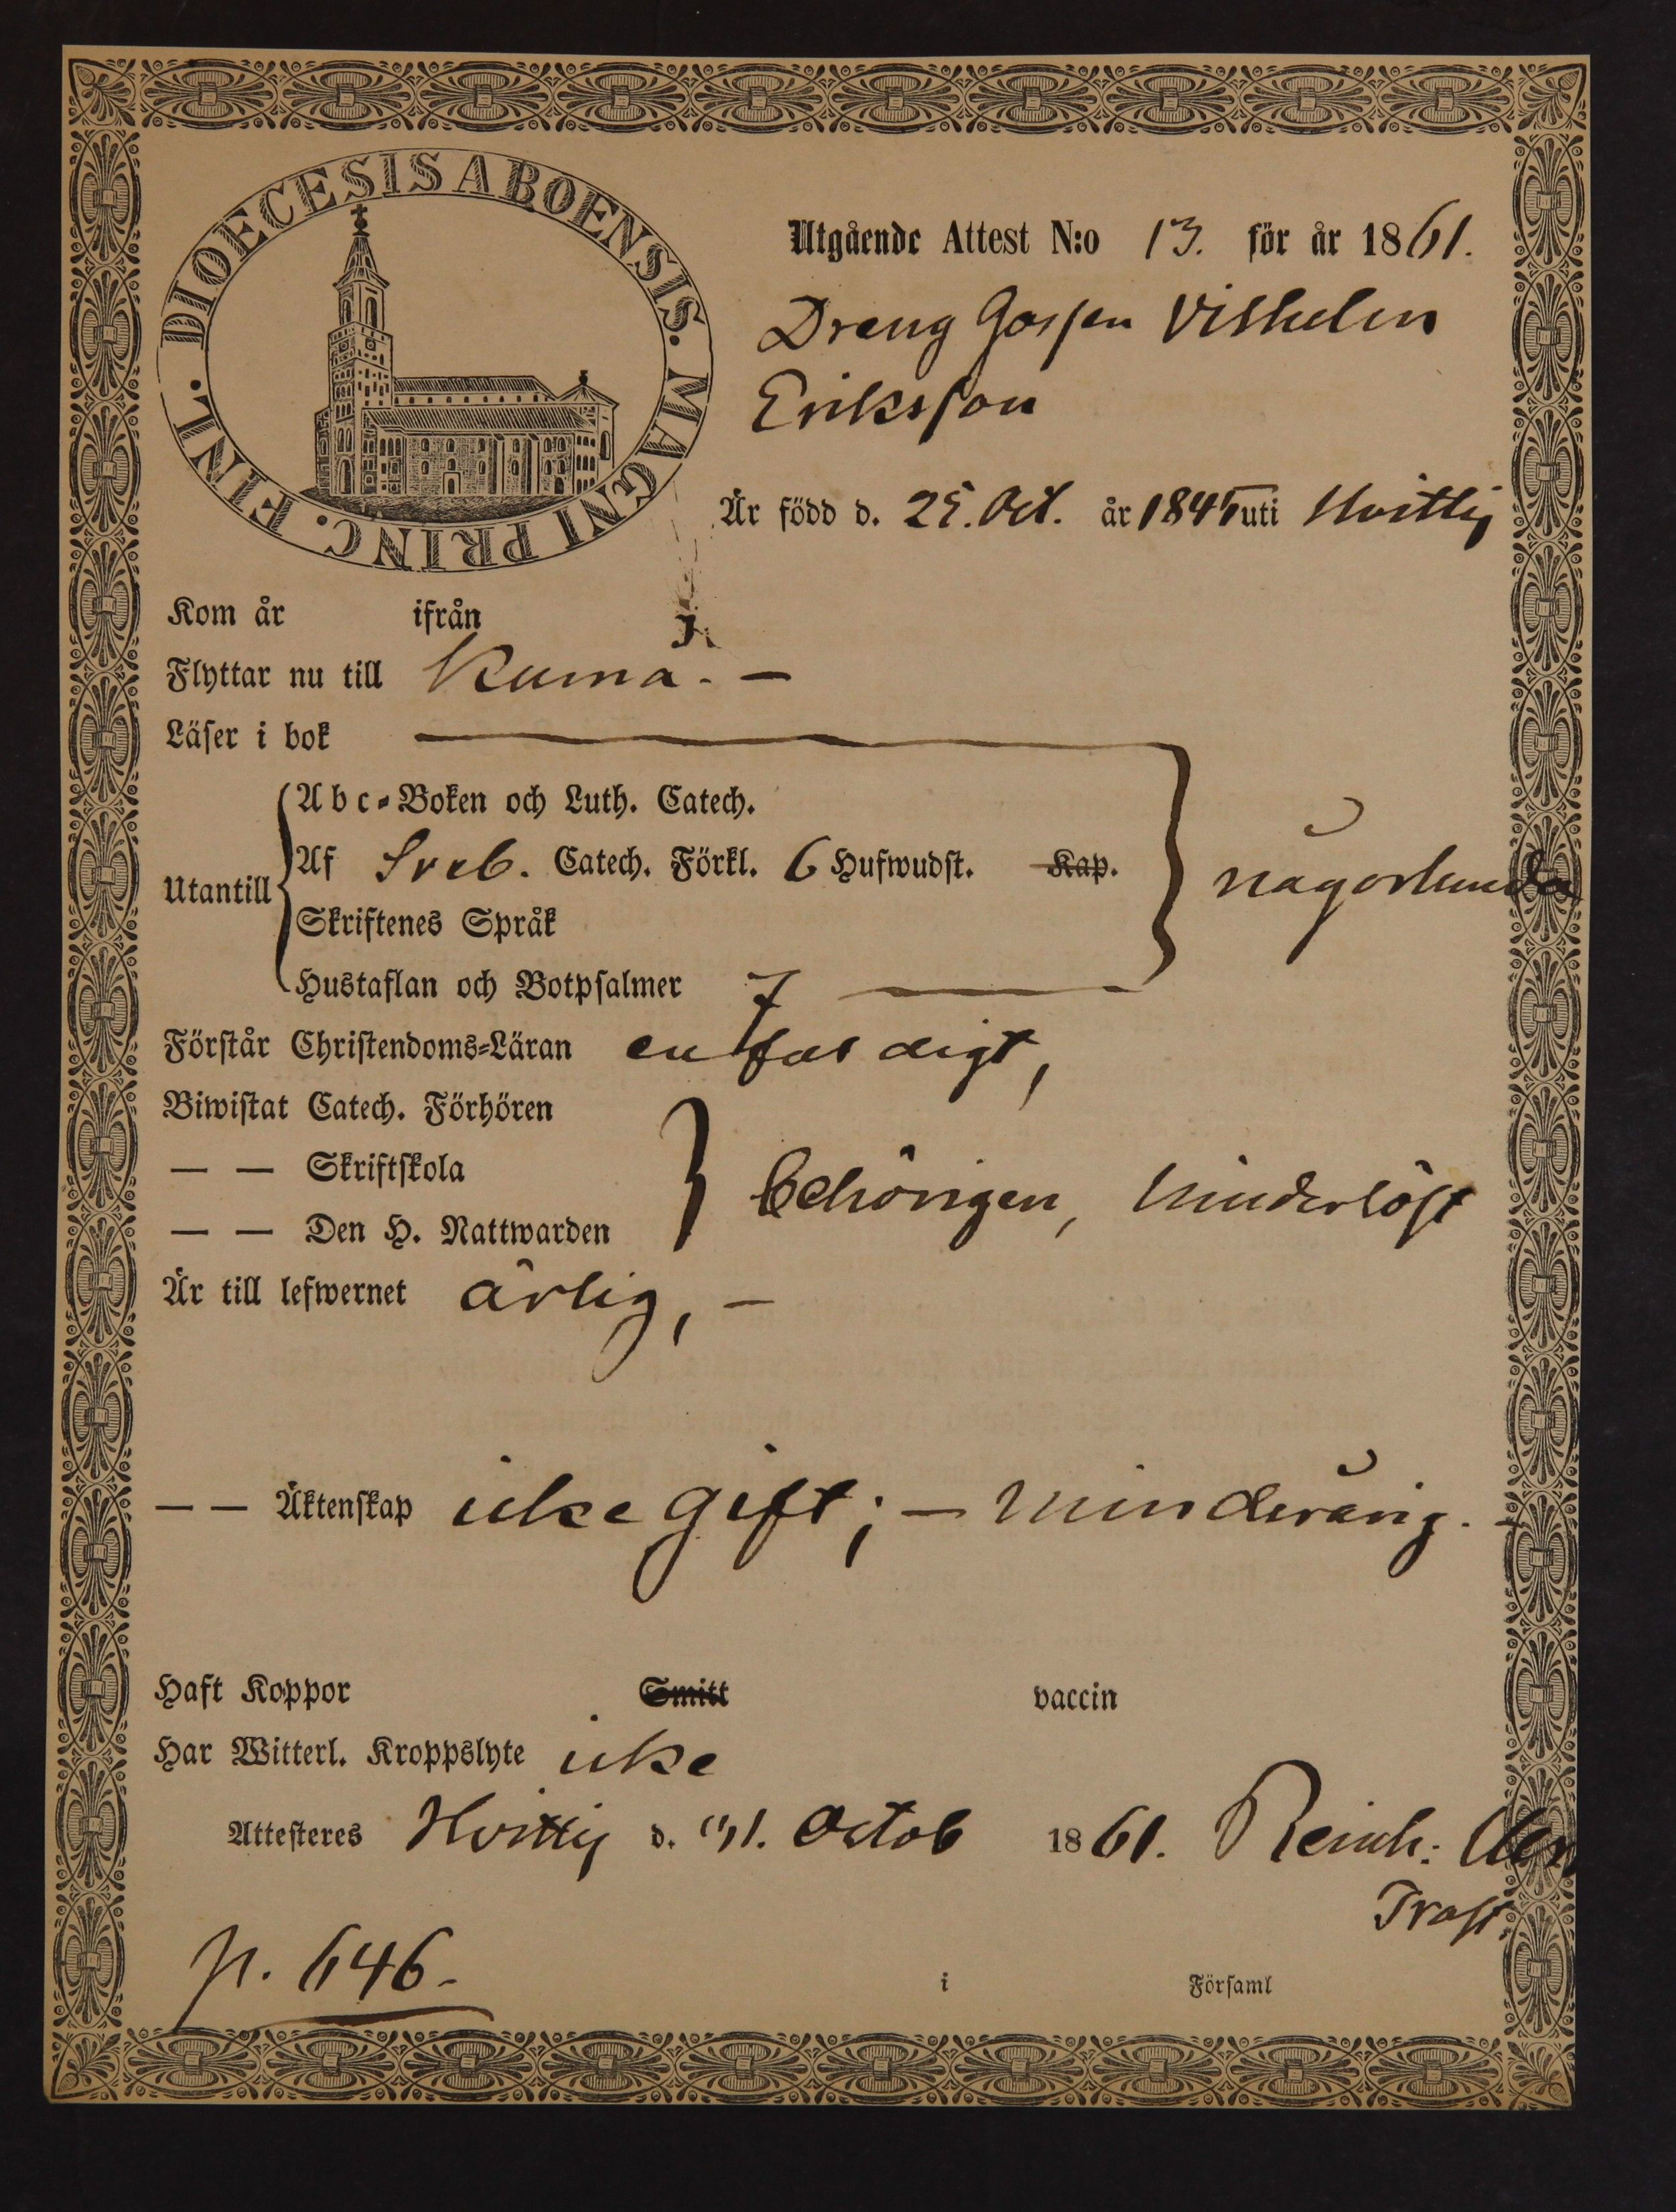 DIOECESIS ABOENSIS. MAGNI PRINC. FINL.
Utgående Attest N:o 13. för år 1861.
Dreng Gossen Vilhelm
Eriksson
Är född d. 25. Oct. år 1845 uti Hvittis
Kom år ifrån
Flyttar nu till Kumo. —
Läser i bok
Abc-Boken och Luth. Catech.
Utantill Af Sveb. Catech. Förkl. 6 Hufwudst. Kap. någorlunda
Skriftenes Språk
Hustaflan och Botpsalmer 7
Förstår Christendoms-Läran enfaldigt,
Biwistat Catech. Förhören
— — Skriftskola behörigen, hinderlöst
— — Den H. Nattwarden
Är till lefwernet ärlig, —
— — Äktenskap icke gift; — minderårig. —
Haft Koppor Smitt vaccin
Har Witterl. Kroppslyte icke
Attesteres Hvittis d. Octob 1861. Reinh:
Prost.
p. 646.
i Församl